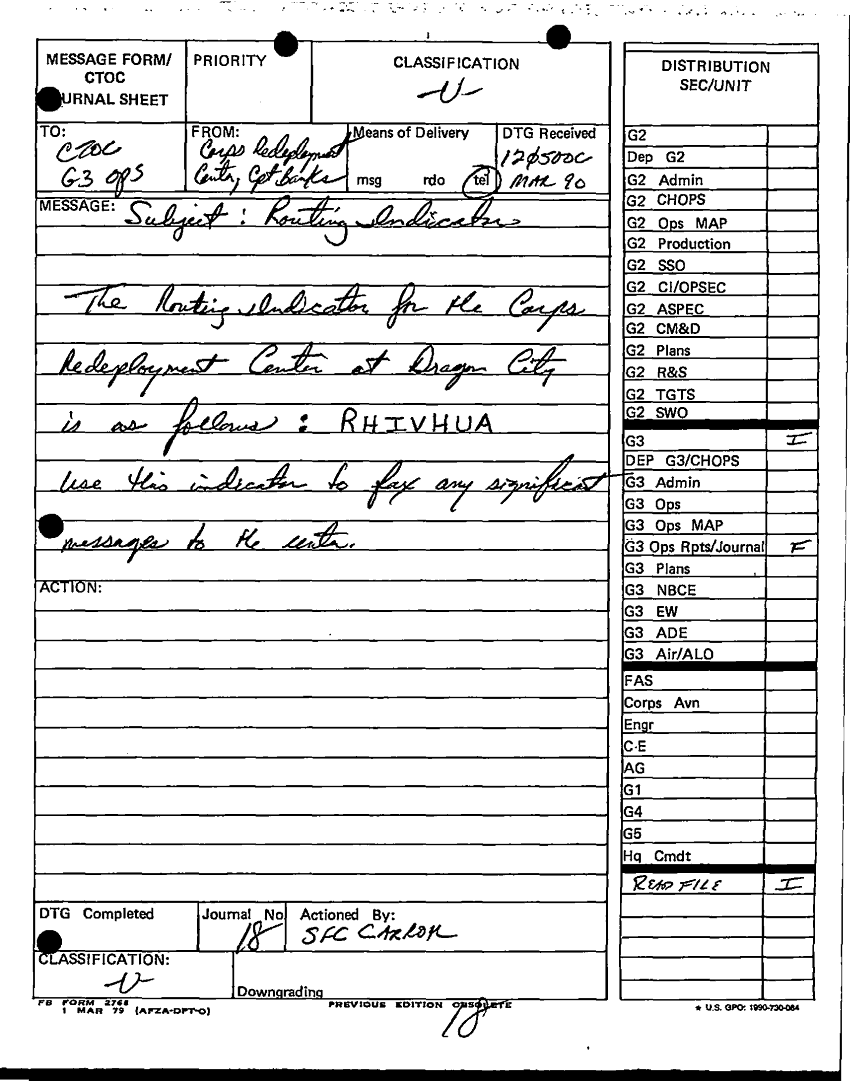 MESSAGE FORM/
CTOC
URNAL SHEET
PRIORITY
CLASSIFICATION
U
TO:
CTOC
G3 OPS
FROM:
Corps Redeployment
Center, Cpt Banks
Means of Delivery
msg rdo tel
DTG Received
120500C
MAR 90
MESSAGE: Subject: Routing Indicator
The Routing Indicator for the Corps
Redeployment Center at Dragon City
is as follows: RHIVHUA
Use this indicator to fax any significant
messages to the center.
ACTION:
DTG Completed
Journal No
18
Actioned By:
SFC
CLASSIFICATION:
U
Downgrading
FB FORM 2768
1 MAR 79 (AFZA-DPT-O)
PREVIOUS EDITION OBSOLETE
18
DISTRIBUTION
SEC/UNIT
G2
Dep G2
G2 Admin
G2 CHOPS
G2 Ops MAP
G2 Production
G2 SSO
G2 CI/OPSEC
G2 ASPEC
G2 CM&D
G2 Plans
G2 R&S
G2 TGTS
G2 SWO
G3 I
DEP G3/CHOPS
G3 Admin
G3 Ops
G3 Ops MAP
G3 Ops Rpts/Journal F
G3 Plans
G3 NBCE
G3 EW
G3 ADE
G3 Air/ALO
FAS
Corps Avn
Engr
C-E
AG
G1
G4
G5
Hq Cmdt
READ FILE I
★ U.S. GPO: 1990-730-084